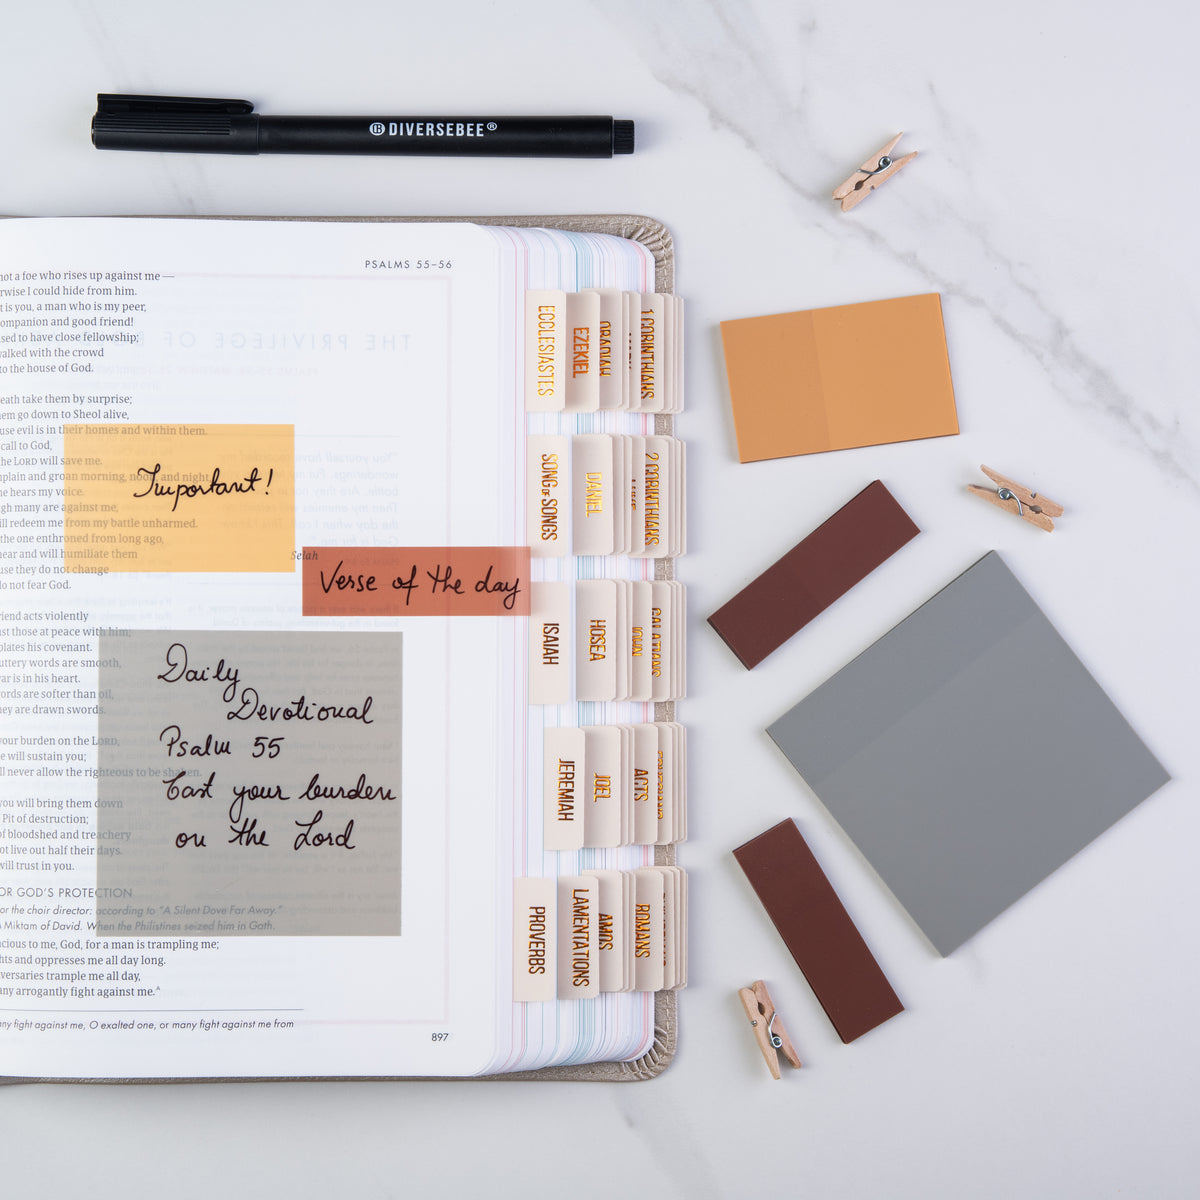 DIVERSEBEE®
PSALMS 55–56
not a foe who rises up against me —
rwise I could hide from him.
t is you, a man who is my peer,
ompanion and good friend!
sed to have close fellowship;
walked with the crowd
to the house of God.
eath take them by surprise;
em go down to Sheol alive,
use evil is in their homes and within them.
call to God,
the LORD will save me.
plain and groan morning, noon, and night,
he hears my voice.
gh many are against me,
ill redeem me from my battle unharmed.
the one enthroned from long ago,
hear and will humiliate them
Selah
use they do not change
do not fear God.
Important!
Verse of the day
riend acts violently
st those at peace with him;
olates his covenant.
uttery words are smooth,
war is in his heart.
ords are softer than oil,
ey are drawn swords.
your burden on the LORD,
e will sustain you;
ll never allow the righteous to be shaken.
you will bring them down
Pit of destruction;
of bloodshed and treachery
ot live out half their days.
will trust in you.
Daily
Devotional
Psalm 55
Cast your burden
on the Lord
OR GOD'S PROTECTION
or the choir director: according to "A Silent Dove Far Away."
Miktam of David. When the Philistines seized him in Gath.
cious to me, God, for a man is trampling me;
hts and oppresses me all day long.
versaries trample me all day,
any arrogantly fight against me.ᴬ
ny fight against me, O exalted one, or many fight against me from
897
ECCLESIASTES
EZEKIEL
OBADIAH
1 CORINTHIANS
SONG OF SONGS
DANIEL
LUKE
2 CORINTHIANS
ISAIAH
HOSEA
JOHN
GALATIANS
JEREMIAH
JOEL
ACTS
PROVERBS
LAMENTATIONS
AMOS
ROMANS